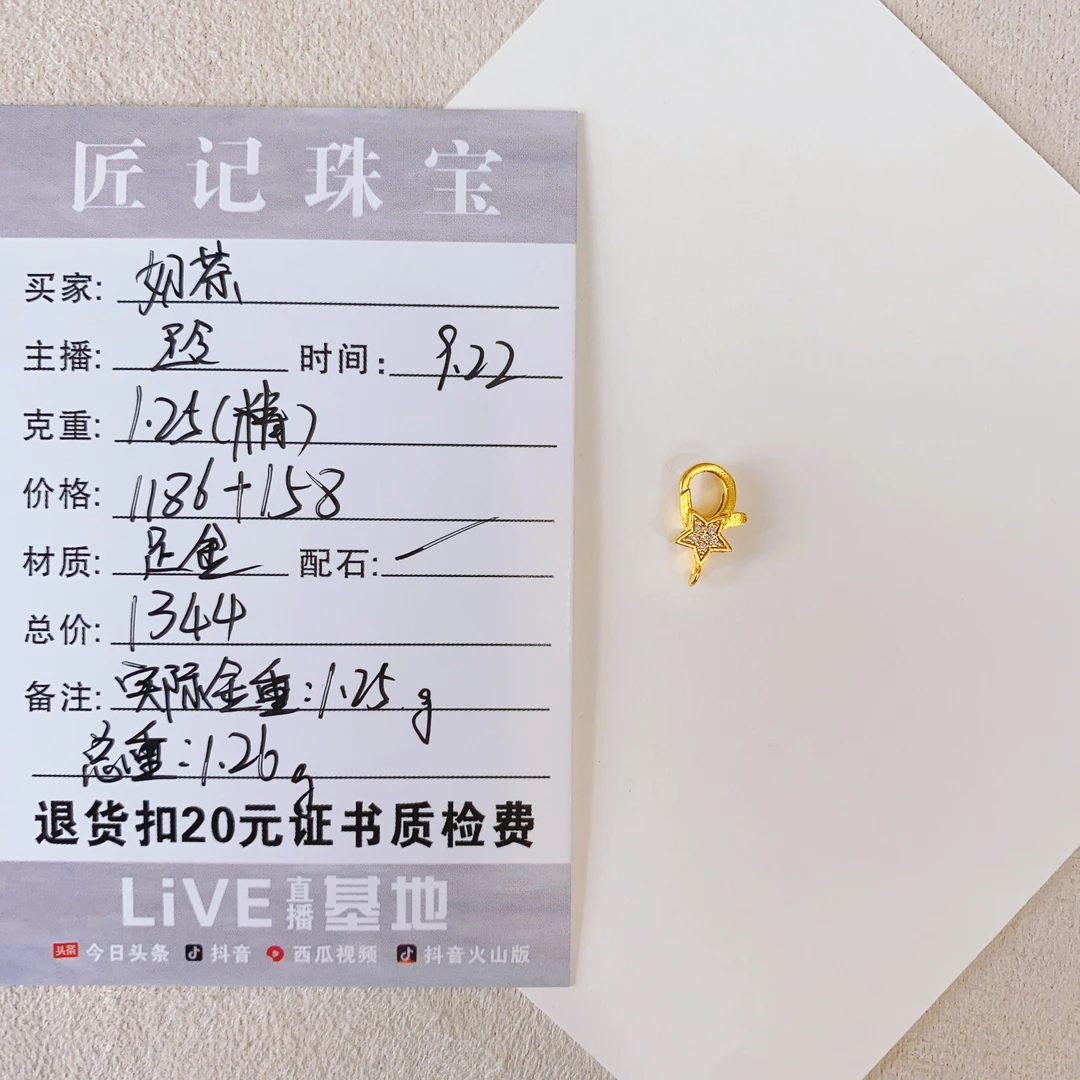 匠记珠宝
买家: 奶茶
主播: 玲 时间: 9.22
克重: 1.25(精)
价格: 1186+158
材质: 足金 配石: /
总价: 1344
备注: 实际金重:1.25g
总重:1.26g
退货扣20元证书质检费
LiVE 直播 基地
头条 今日头条 抖音 西瓜视频 抖音火山版